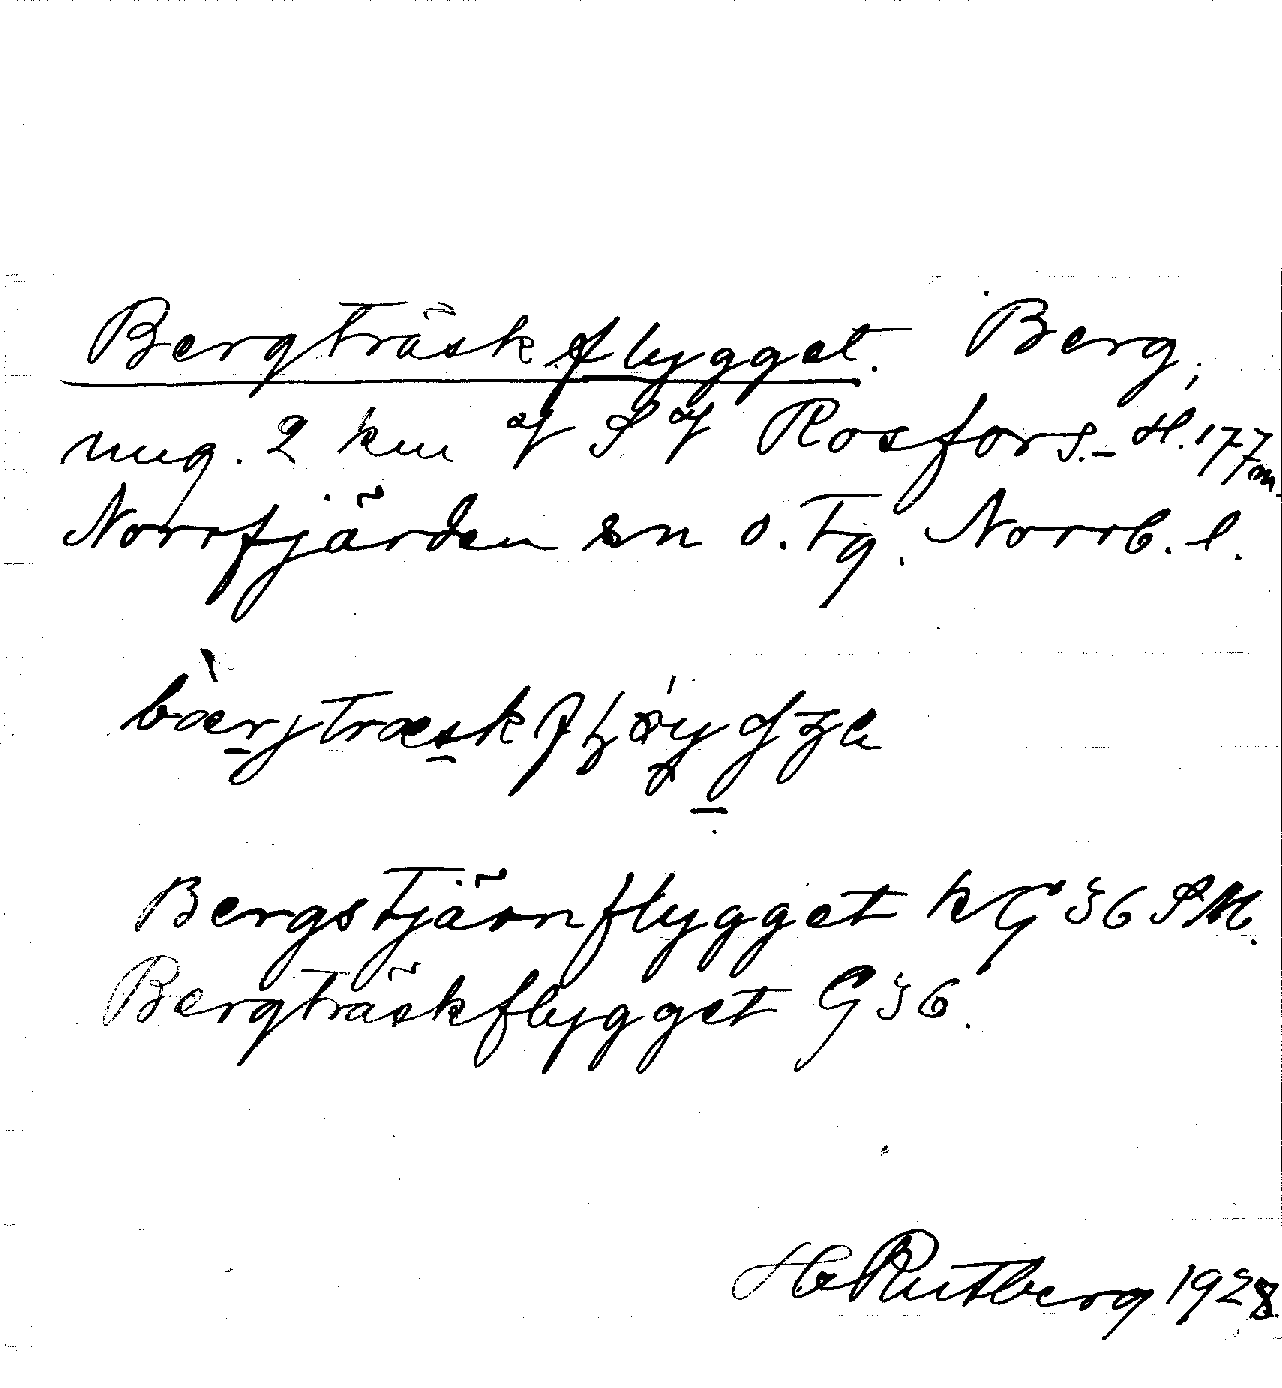 Bergträskflygget. Berg,
ung. 2 km of S of Rosfors. – H. 177 m.
Norrfjärden sn o. tg. Norrb. l.
Bergstjärnflygget k G 36 S M.
Bergträskflygget G 36.
H Rutberg 1928